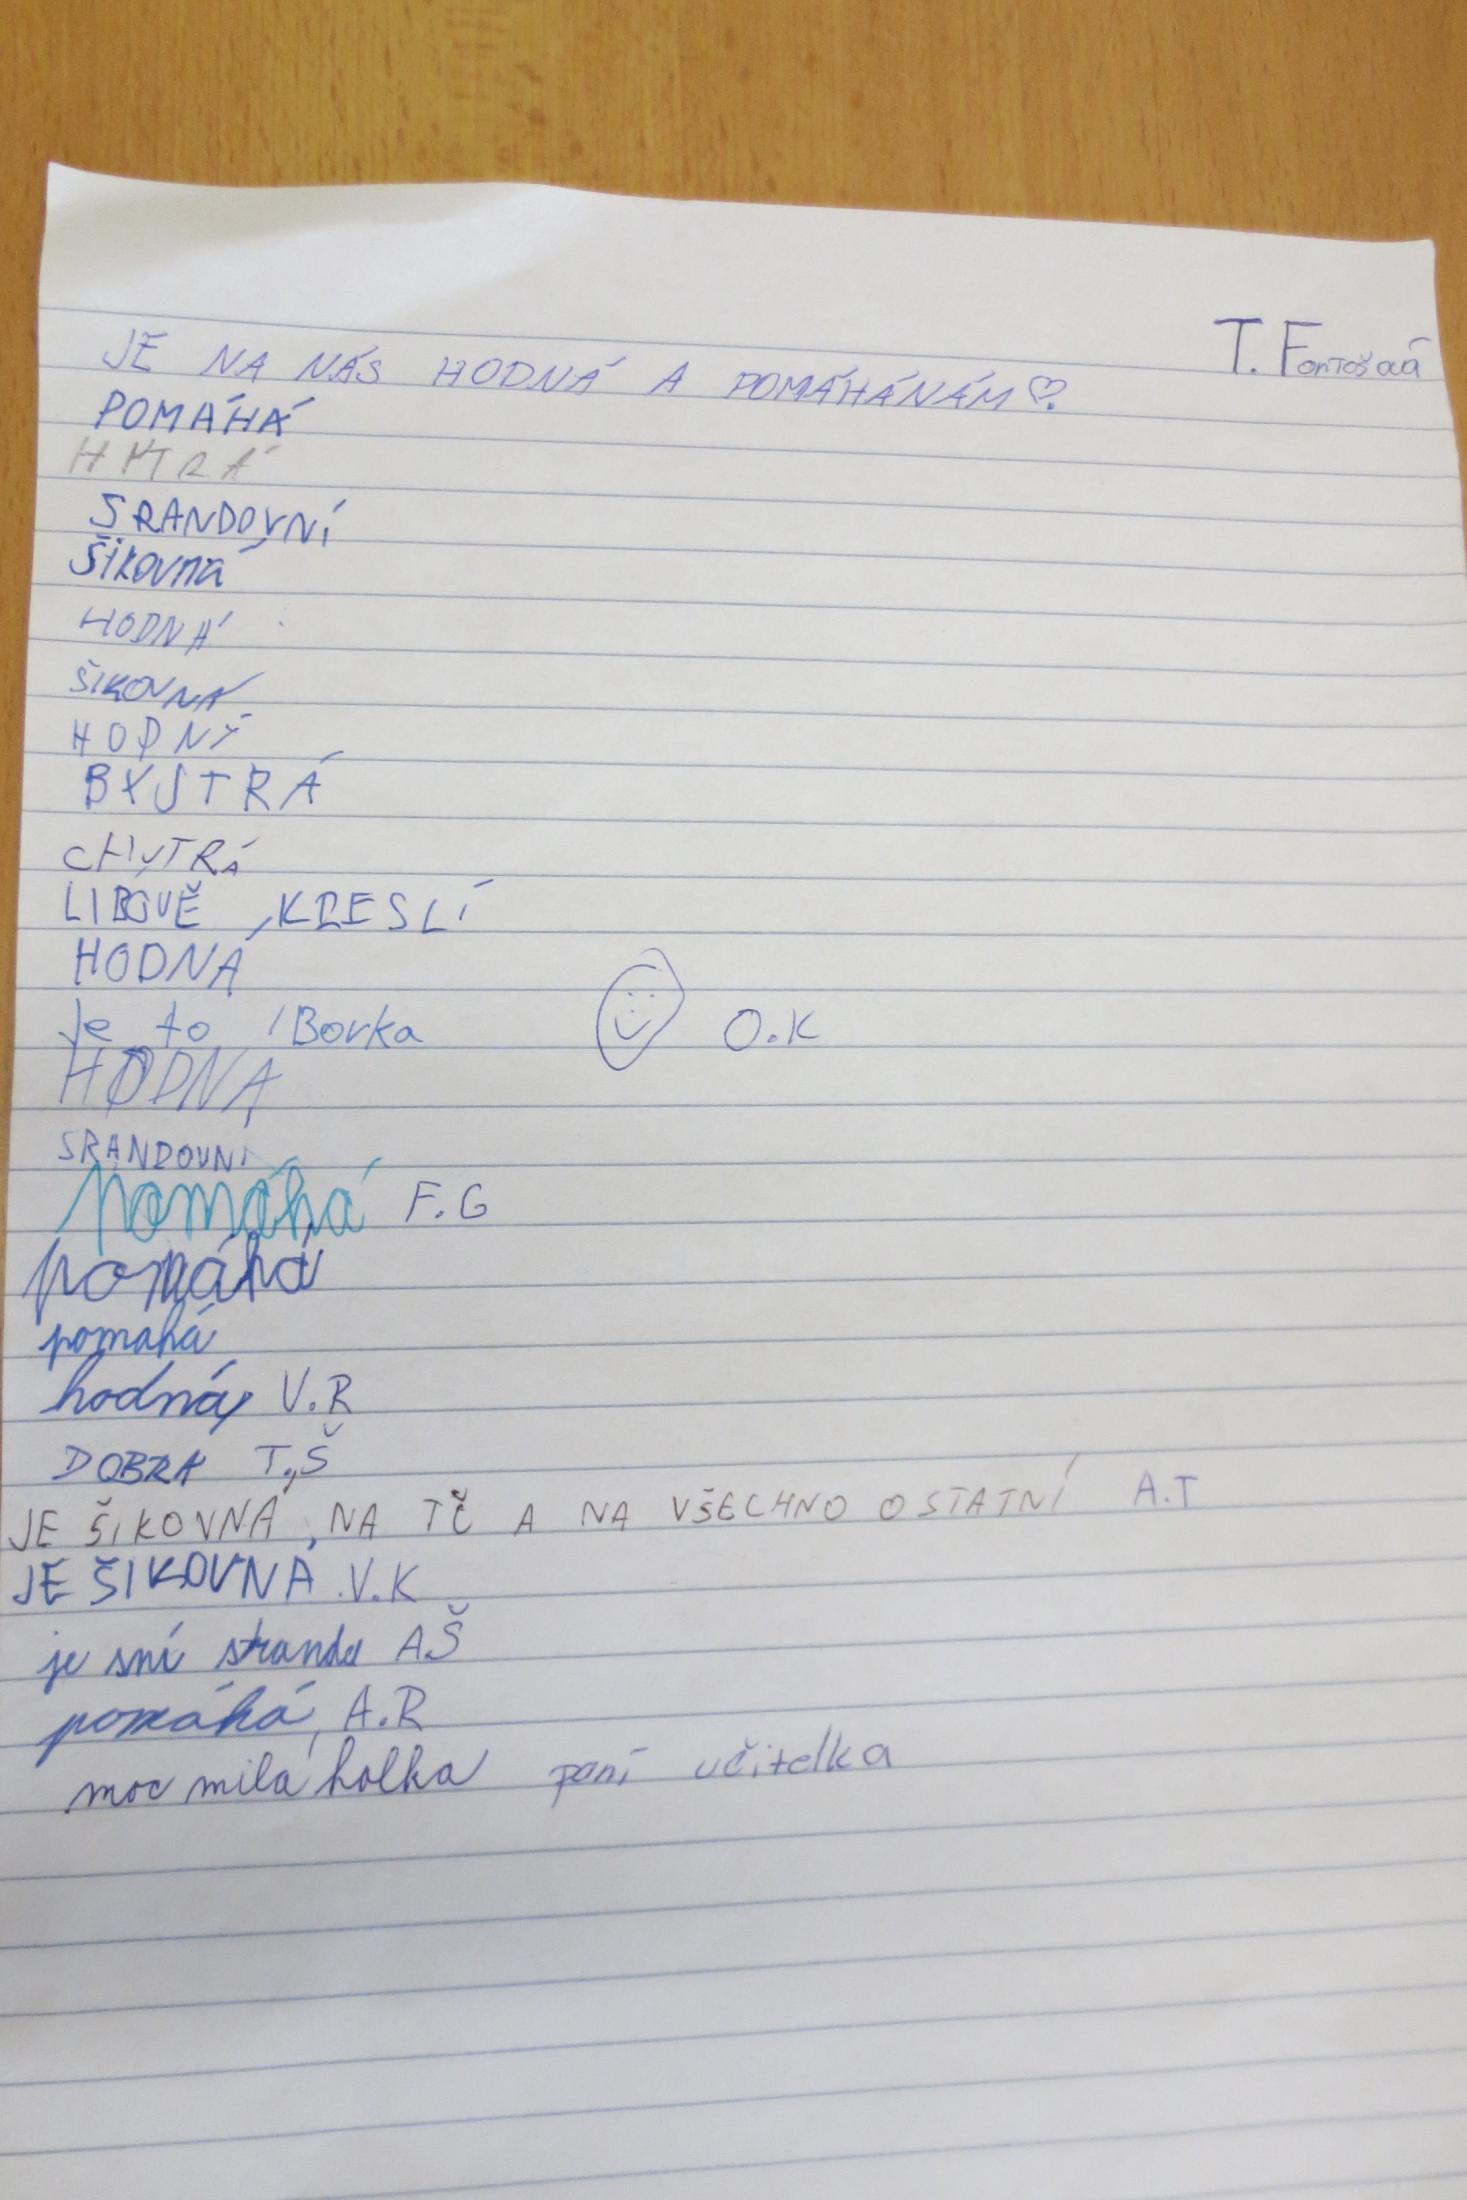 T. Fantošová
JE NA NÁS HODNÁ A POMÁHÁNÁM♡.
POMÁHÁ
SRANDOVNÍ
Šikovná
HODNÁ
ŠIKOVNÁ
HODNÝ
BYSTRÁ
CHYTRÁ
LIBOVĚ, KRESLÍ
HODNÁ
Je to Borka O.K
HODNÁ
SRANDOVNÍ
pomáhá F.G
pomáhá
pomahá
hodná V.R
DOBRÁ T.Š
JE ŠIKOVNÁ, NA TČ A NA VŠECHNO OSTATNÍ A.T
JE ŠIKOVNÁ V.K
je sní sranda AŠ
pomáhá, A.R
moc milá holka paní učitelka